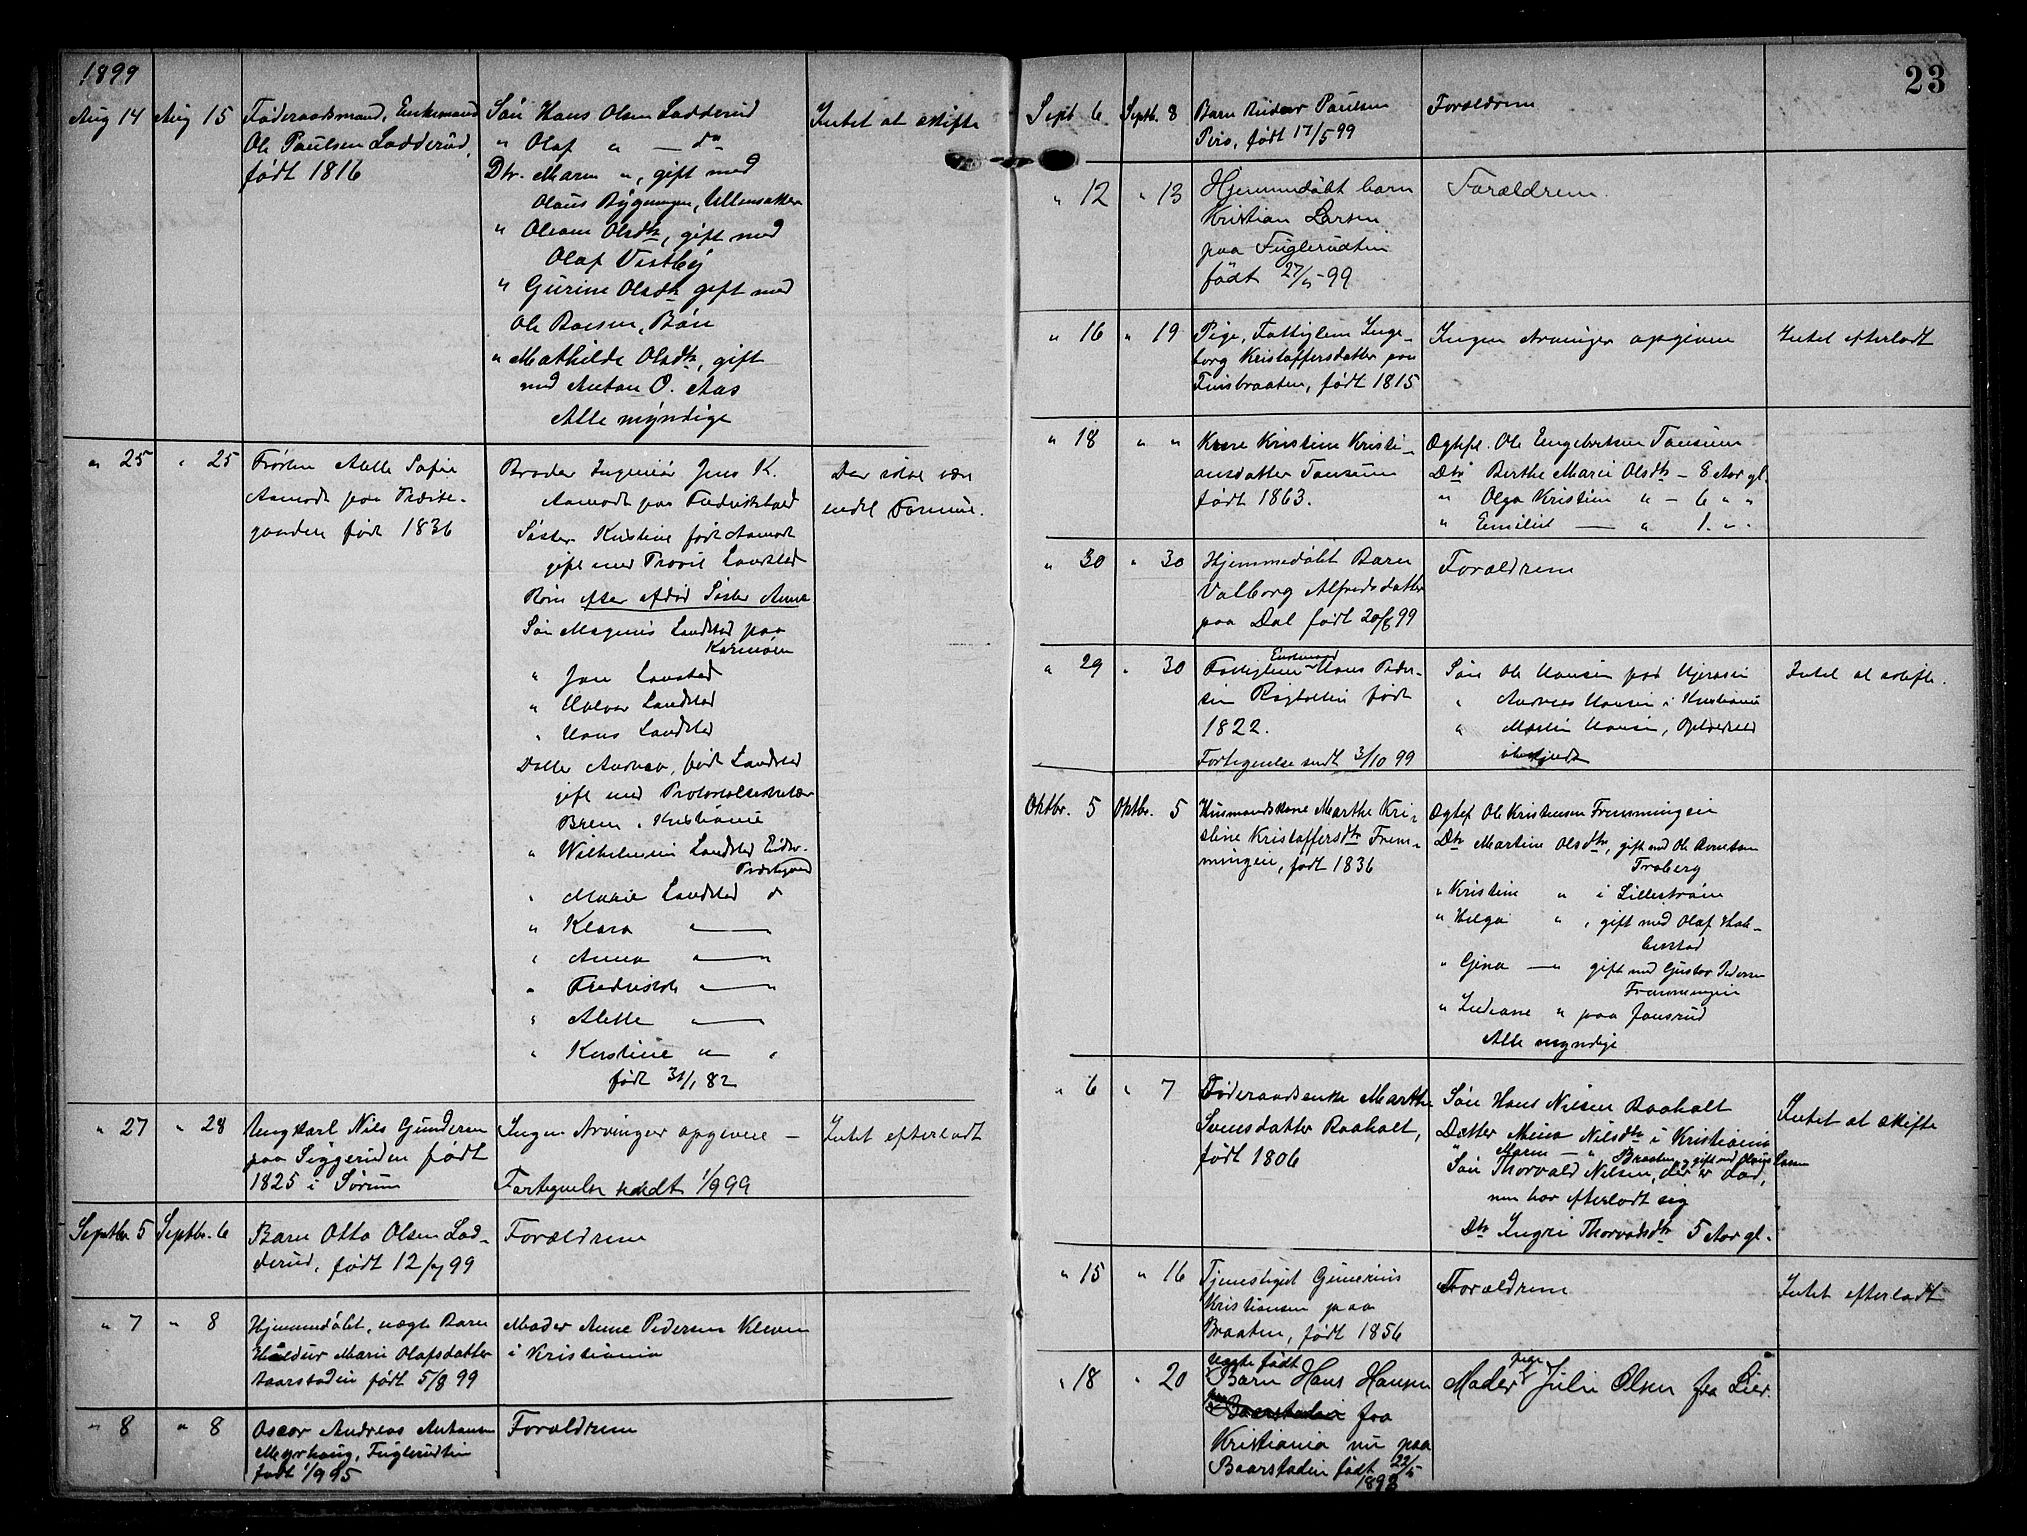 1899
Aug 14 Aug 15 Føderaadsmand, Enkemand Søn Hans Olsen Ladderud Intet at skifte
Ole Paulsen Ladderud, " Olaf " — do
født 1816 Dtr. Maren ", gift med
Olaus Bygningen, Ullensaker
" Oleane Olsdtr, gift med
Olaf Vestby
" Gurine Olsdtr gift med
Ole Boesen, Bøn
" Mathilde Olsdtr, gift
med Anton O. Aas
Alle myndige
" 25 " 25 Frøken Alette Sofie Broder Ingeniør Jens K. Der skal være
Aamodt paa Præste- Aamodt paa Fredrikstad endel Formue.
gaarden født 1836 Søster Kristine født Aamodt
gift med Provst Landstad
Børn efter afdød Søster Anna
Søn Magnus Landstad paa
Karmøen
" Jens Landstad
" Halvor Landstad
" Hans Landstad
Datter Andrea, født Landstad
gift med Protokolsekretær
Brem i Kristiania
" Wilhelmine Landstad Eidsv.
Præstegaard
" Marie Landstad do
" Klara " — "
" Anna " — "
" Fredrikke " — "
" Alette " —
" Kirstine " "
født 31/1 82
" 27 " 28 Ungkarl Nils Gundersen Ingen Arvinger opgivne — Intet efterladt
paa Siggeruden født
1825 i Sørum Fortegnelse sendt 1/9 99
Septbr. 5 Septbr. 6 Barn Otto Olsen Lad- Forældrene
derud, født 12/7 99
" 7 " 8 Hjemmedøbt, uægte Barn Moder Anne Pedersen Kleven
Huldur Marie Olafsdatter i Kristiania
Baarstadeie født 5/8 99
" 8 " 8 Oscar Andreas Antonsen Forældrene
Myrhaug, Fuglerudeie
født 1/9 95
23
Sept 6 Septb. 8 Barn Reidar Paulsen Forældrene
Piro, født 17/5 99
" 12 " 13 Hjemmedøbt barn Forældrene.
Kristian Larsen
paa Fuglerudeie
født 27/5 - 99
" 16 " 19 Pige, Fattiglem Inge- Ingen Arvinger opgivne Intet efterladt
borg Kristoffersdatter paa
Finsbraaten, født 1815
" 18 " " Kone Kristine Kristi- Ægtef. Ole Engebretsen Tønsum
ansdatter Tønsum Dtr Berthe Marie Olsdtr — 8 Aar gl.
født 1863. " Olga Kristine " — 6 " "
" Emilie — " 1. " .
" 30 " 30 Hjemmedøbt Barn Forældrene
Valborg Alfredsdatter
paa Dal født 20/8 99
" 29 " 30 Enkemand
Fattiglem Hans Peder- Søn Ole Hansen paa Søn Intet at skifte.
sen født " Andreas Hansen i Kristiania
1822. " Martin Hansen, Opholdssted
Fortegnelse sendt 3/10 99 ubekjendt
Oktbr. 5 Oktbr. 5 Husmandskone Marthe Kri- Ægtef Ole Kristensen Fremmingen
stine Kristoffersdtr Frem- Dtr Martine Olsdtr, gift med Ole Arnesen
mingen, født 1836 Froberg
" Kristine " i Lillestrøm
" Helga " , gift med Olaf Hak-
" Gina — " gift med Gustav Pedersen
Fremmingen
" Indiane " paa Jønsrud
Alle myndige
" 6 " 7 Føderaadsenke Marthe Søn Hans Nilsen Raaholt Intet at skifte
Svensdatter Raaholt, Datter Mina Nilsdtr i Kristiania
født 1806 " Maren — " Braaten, gift med Olaus Larsen
Søn Thorvald Nilsen, der er død,
men har efterladt sig
Dtr Ingri Thorvaldsdtr 5 Aar gl.
" 15 " 16 Tjenestepige Gunerius Forældrene Intet efterladt
Kristiansen paa
Braaten, født 1856
" 18 " 20 uægte født
Barn Hans Hansen Moder pige Julie Olsen fra Lier
Baarstadeie fra
Kristiania nu paa
Baarstadeie født 22/5
1898